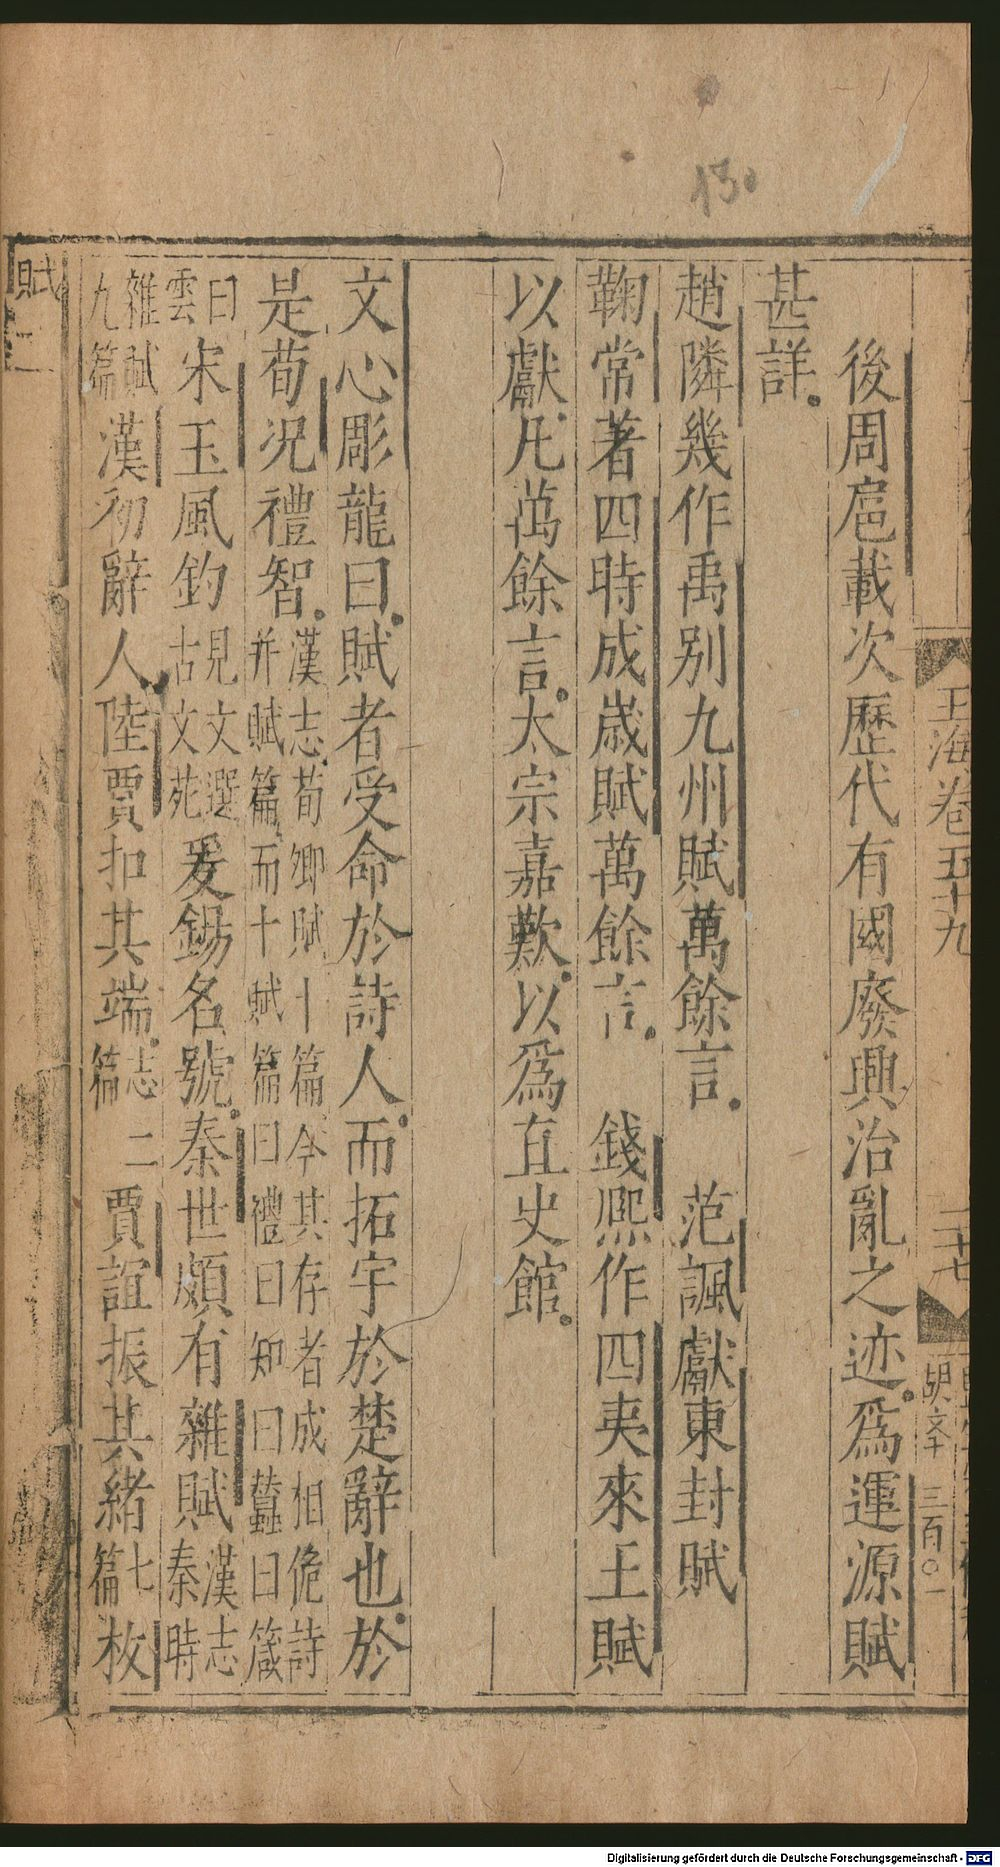 130
玉海卷五十九
二十七
胡文 三百〇一
後周扈載次歷代有國廢興治亂之迹爲運源賦
甚詳
趙隣幾作禹别九州賦萬餘言 范諷獻東封賦
鞠常著四時成歲賦萬餘言 錢熙作四夷來王賦
以獻凡萬餘言太宗嘉歎以爲直史館
文心彫龍曰賦者受命於詩人而拓宇於楚辭也於
是荀况禮智
漢志荀卿賦十篇今其存者成相佹詩
并賦篇而十賦篇曰禮曰知曰蠶曰箴
曰
雲
宋玉風釣
見文選
古文苑
爰錫名號秦世頗有雜賦
漢志
秦時
雜賦
九篇
漢初辭人陸賈扣其端
志
篇
二賈誼振其緒
七
篇
枚
賦二
Digitalisierung gefördert durch die Deutsche Forschungsgemeinschaft - DFG